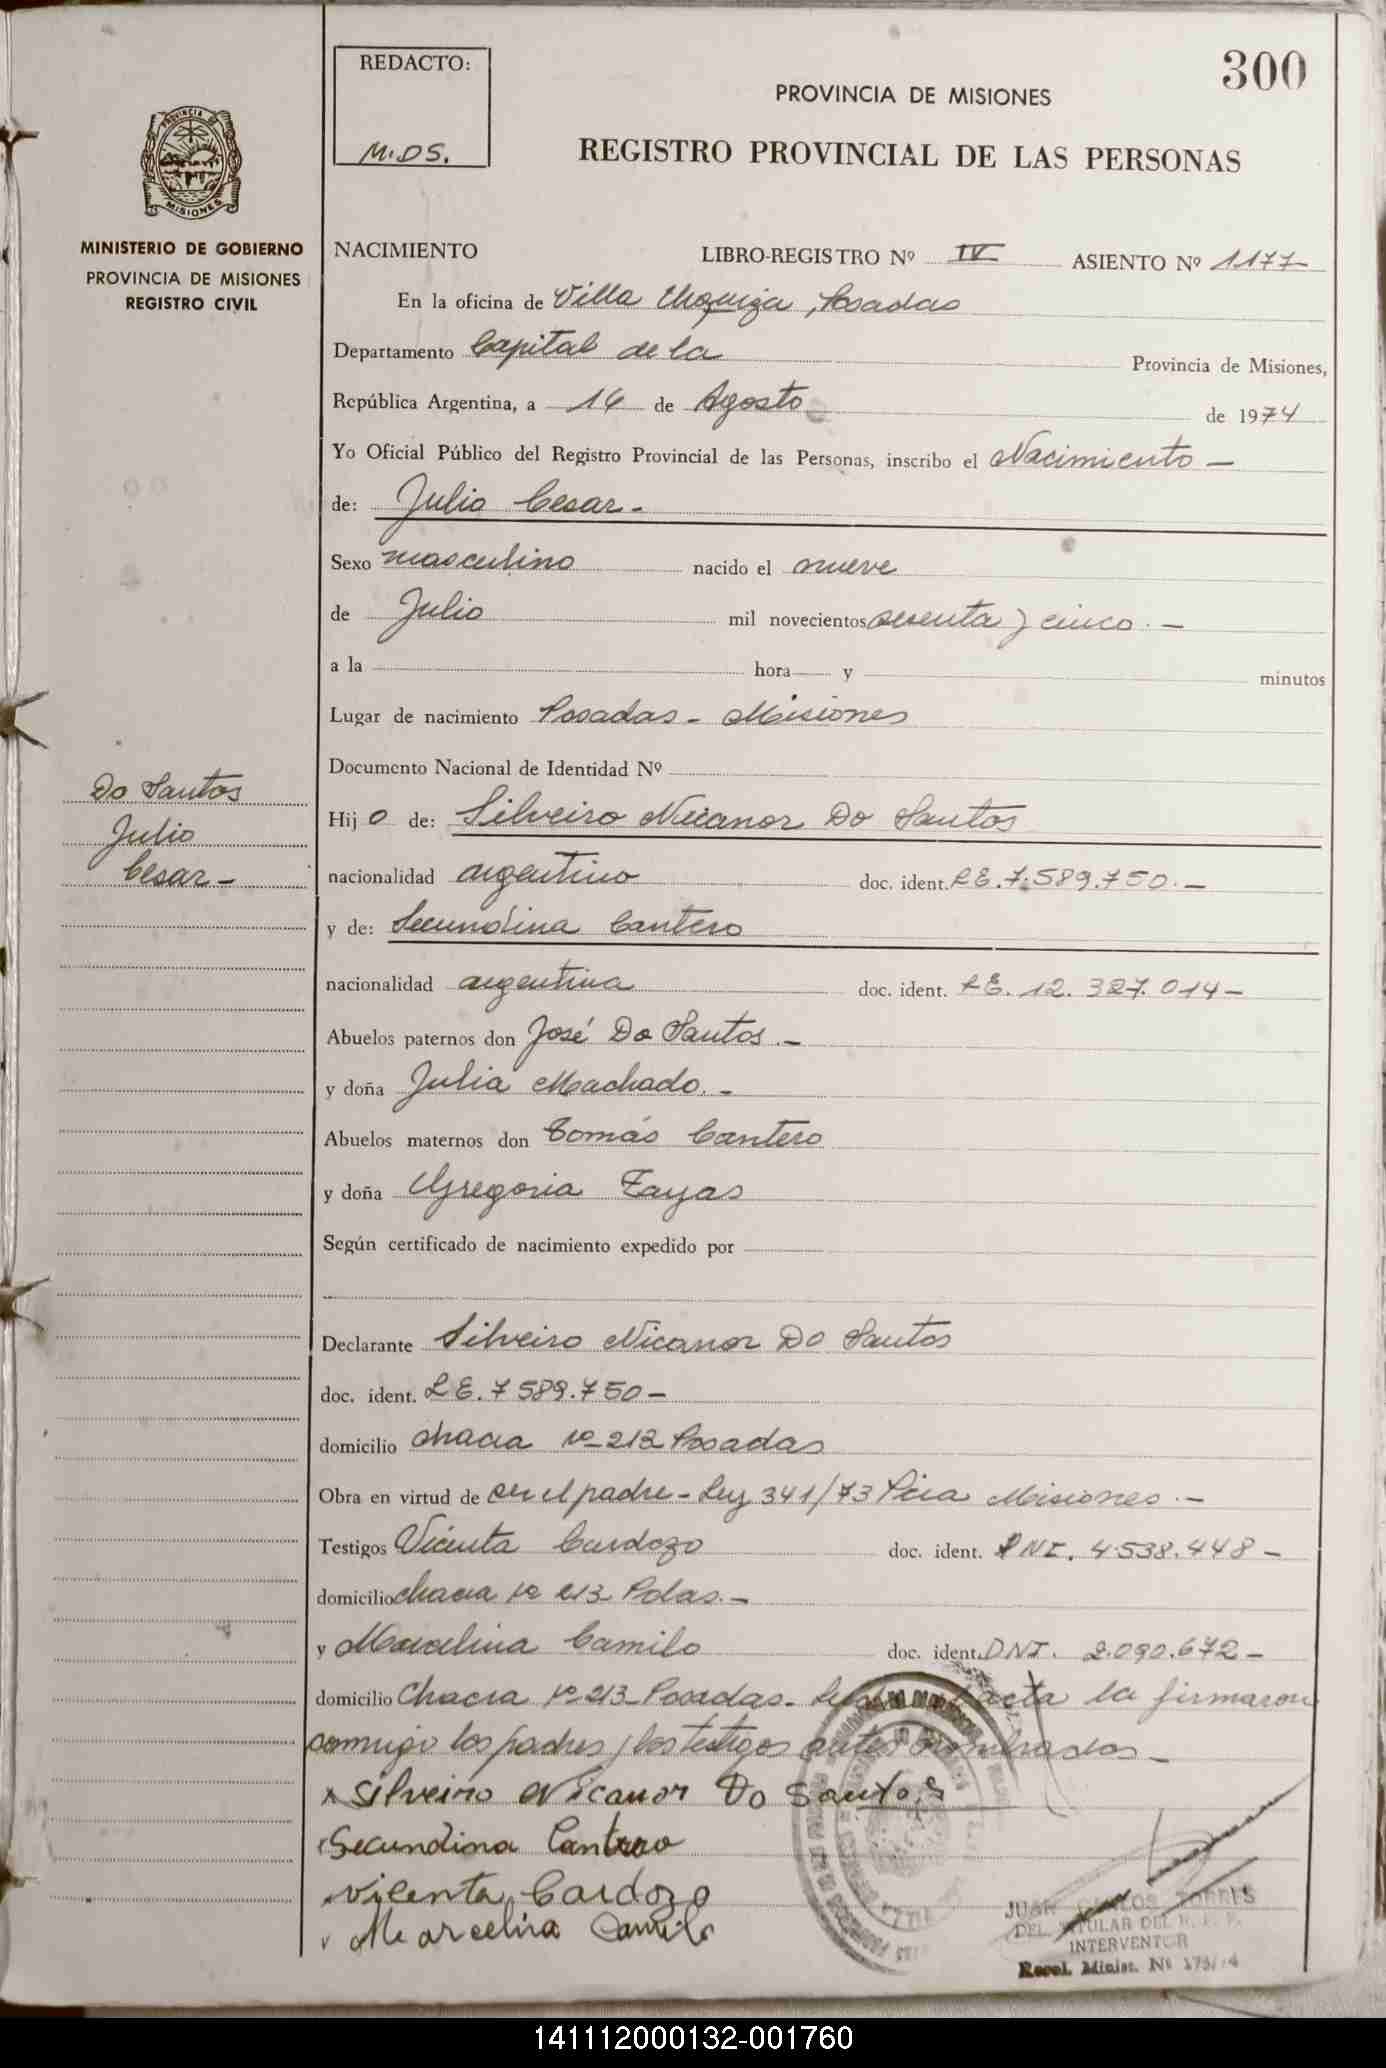 300
REDACTO:
M.DS.
PROVINCIA DE MISIONES
REGISTRO PROVINCIAL DE LAS PERSONAS
PROVINCIA DE
MISIONES
MINISTERIO DE GOBIERNO
PROVINCIA DE MISIONES
REGISTRO CIVIL
NACIMIENTO LIBRO-REGISTRO Nº IV ASIENTO Nº 1177
En la oficina de Villa Urquiza, Posadas
Departamento Capital de la Provincia de Misiones,
República Argentina, a 16 de Agosto de 1974
Yo Oficial Público del Registro Provincial de las Personas, inscribo el Nacimiento —
de: Julio Cesar -
Sexo masculino nacido el nueve
de Julio mil novecientos sesenta y cinco. —
a la hora y minutos
Lugar de nacimiento Posadas - Misiones
Documento Nacional de Identidad Nº
Do Santos
Julio
Cesar -
Hij o de: Silveiro Nicanor Do Santos
nacionalidad argentino doc. ident. L E. 7.589.750. —
y de: Secundina Cantero
nacionalidad argentina doc. ident. L E. 12. 327. 014 —
Abuelos paternos don José Do Santos. —
y doña Julia Machado. -
Abuelos maternos don Tomás Cantero
y doña Gregoria Tayas
Según certificado de nacimiento expedido por
Declarante Silveiro Nicanor Do Santos
doc. ident. L E. 7 589.750 —
domicilio chacra nº 213 Posadas
Obra en virtud de ser el padre - Ley 341/73 Pcia Misiones. —
Testigos Vicenta Cardozo doc. ident. DNI. 4538.448 —
domicilio chacra nº 213 Pdas. —
y Marcelina Camilo doc. ident. DNI. 2.090.672 —
domicilio Chacra nº 213 Posadas - acta la firmaron
conmigo los padres y los testigos antes nombrados —
Silveiro Nicanor Do Santos
Secundina Cantero
Vicenta Cardozo
Marcelina Camilo
JUAN CARLOS TORRES
DEL. TITULAR DEL R. P. P.
INTERVENTOR
Resol. Minist. Nº
141112000132-001760